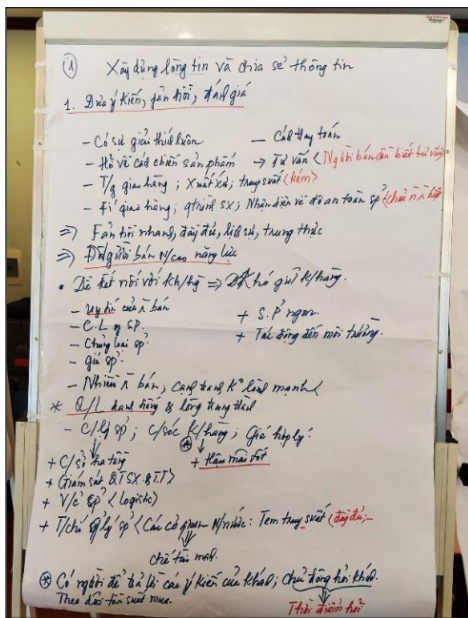 1 Xây dựng lòng tin và chia sẻ thông tin
1. Đưa ý kiến, phản hồi, đánh giá
- Có sự giải thích luôn - Cách thanh toán
- Hỏi về cách chiến sản phẩm → Tư vấn <Người bán cần biết tư vấn>
- T/g giao hàng; Xuất xứ; truy suất <kém>
- Fí giao hàng; qtrình sx; Nhận diện về độ an toàn sp
=> Fản hồi nhanh, đầy đủ, lịch sự, trung thực
=> Người bán n/cao năng lực
• Dễ kết nối với kh/hg => khó giữ k/hàng.
- của n bán + S.P ngon
- C.L of SP. + Tác động đến môi trường.
- Chủng loại sp
- giá sp
- Nhiều n bán, cạnh tranh ko lành mạnh
* Q/L hàng & lòng trung thành
- C/lg sp; C/sóc k/hàng; Giá hợp lý!
+ C/sở hạ tầng + Hậu mãi tốt
+ Giám sát QTSX.
+ V/c sp <logistic>
+ T/chí sp <Các cơ quan N/nước: Tem truy suất <đầy đủ
chế tài mạnh
* Có người để trả lời các ý kiến của khách; Chủ động hỏi khách.
Theo dõi tần suất mua. Thời điểm hỏi